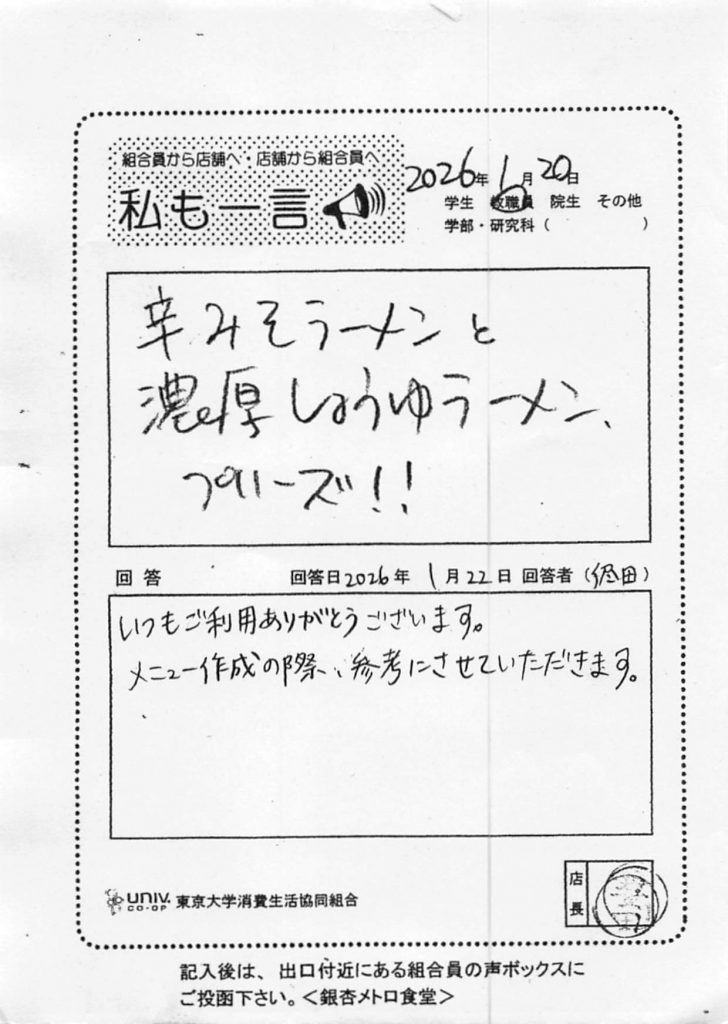 組合員から店舗へ・店舗から組合員へ
私も一言
2026年 1月20日
学生 教職員 院生 その他
学部・研究科( )
辛みそラーメンと
濃厚しょうゆラーメン、
プリーズ!!
回答 回答日2026年 1月22日 回答者( 田)
いつもご利用ありがとうございます。
メニュー作成の際、参考にさせていただきます。
univ. CO-OP 東京大学消費生活協同組合
店長
記入後は、出口付近にある組合員の声ボックスに
ご投函下さい。<銀杏メトロ食堂>